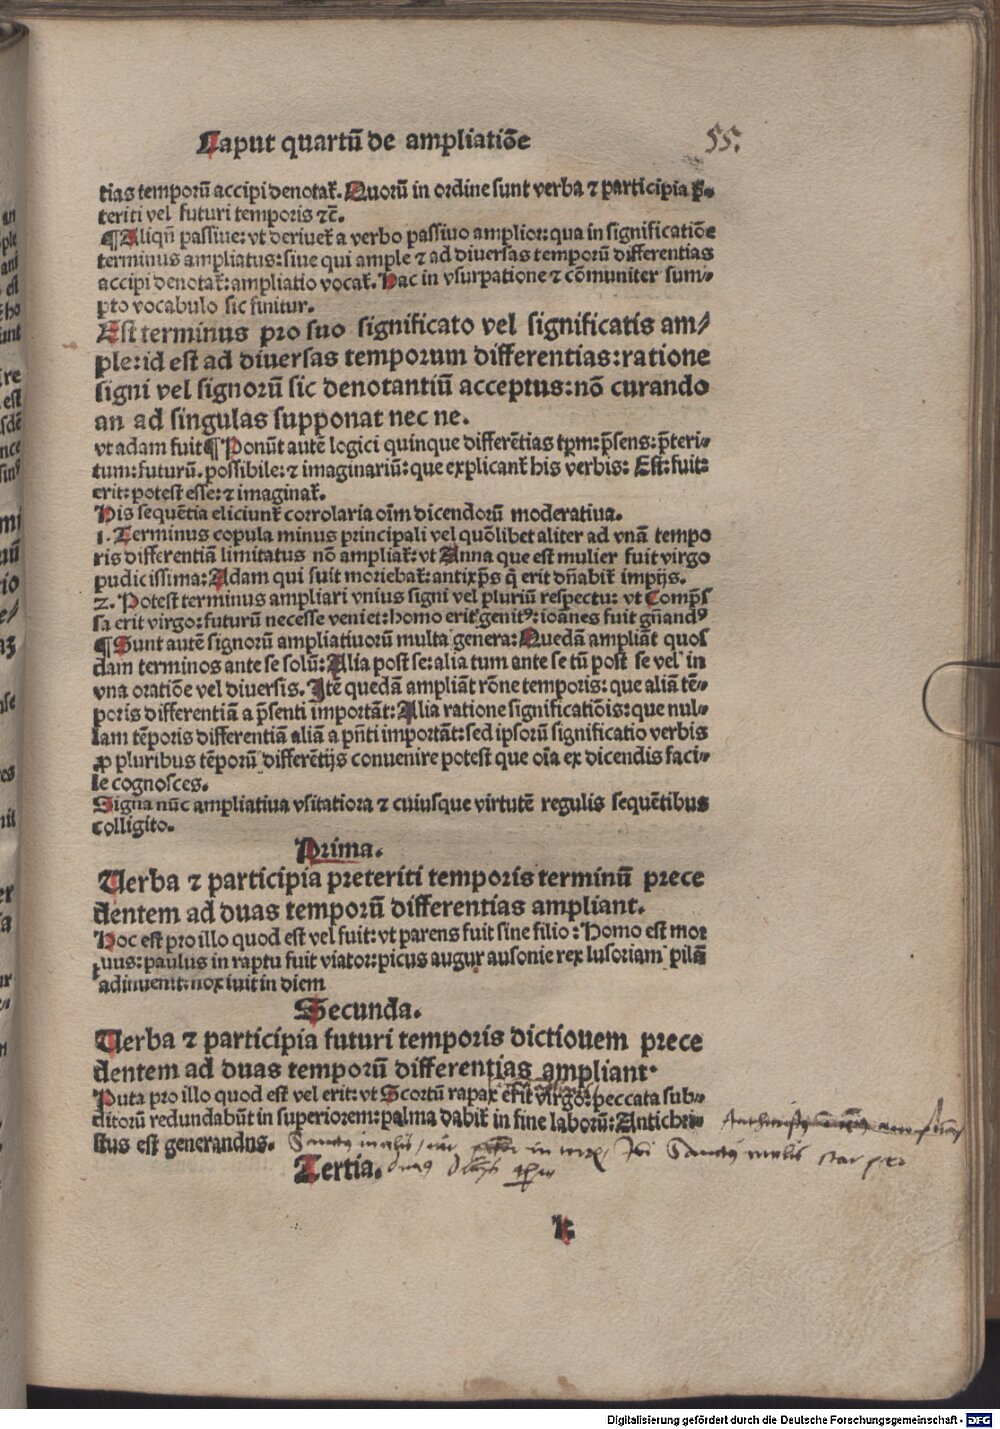 Caput quartū de ampliatiōe
55.
tias temporū accipi denotat̄. Quorū in ordine sunt verba ⁊ participia p̄-
teriti vel futuri temporis ⁊c̄.
¶ Aliqn̄ passiue: vt deriuet̄ a verbo passiuo amplior: qua in significatiōe
terminus ampliatus: siue qui ample ⁊ ad diuersas temporū differentias
accipi denotat̄: ampliatio vocat̄. Hac in vsurpatione ⁊ cōmuniter sum-
pto vocabulo sic finitur.
Est terminus pro suo significato vel significatis am/
ple: id est ad diuersas temporum differentias: ratione
signi vel signorū sic denotantiū acceptus: nō curando
an ad singulas supponat nec ne.
vt adam fuit ¶ Ponūt autē logici quinque differētias tp̄m: p̄sens: p̄teri-
tum: futurū. possibile: ⁊ imaginariū: que explicant̄ his verbis: Est: fuit:
erit: potest esse: ⁊ imaginat̄.
His sequētia eliciunt̄ corrolaria oīm dicendorū moderatiua.
1. Terminus copula minus principali vel quōlibet aliter ad vnā tempo
ris differentiā limitatus nō ampliat̄: vt Anna que est mulier fuit virgo
pudicissima: Adam qui fuit moriebat̄: antixp̄s q̄ erit dn̄abit̄ impijs.
2. Potest terminus ampliari vnius signi vel pluriū respectu: vt Comp̄s
sa erit virgo: futurū necesse veniet: homo erit genitꝰ: ioānes fuit gn̄andꝰ
¶ Sunt autē signorū ampliatiuorū multa genera: Quedā ampliāt quos
dam terminos ante se solū: Alia post se: alia tum ante se tū post se vel in
vna oratiōe vel diuersis. Itē quedā ampliāt rōne temporis: que aliā tē-
poris differentiā a p̄senti importāt: Alia ratione significatiōis: que nul-
lam tēporis differentiā aliā a pn̄ti importāt: sed ipsorū significatio verbis
ꝓ pluribus tēporū differētijs conuenire potest que oīa ex dicendis faci-
le cognosces.
Signa nūc ampliatiua vsitatiora ⁊ cuiusque virtutē regulis sequētibus
colligito.
Prima.
Verba ⁊ participia preteriti temporis terminū prece
dentem ad duas temporū differentias ampliant.
Hoc est pro illo quod est vel fuit: vt parens fuit sine filio: Homo est mor
tuus: paulus in raptu fuit viator: picus augur ausonie rex lusoriam pilā
adinuenit: nox iuit in diem
Secunda.
Verba ⁊ participia futuri temporis dictionem prece
dentem ad duas temporū differentias ampliant.
Puta pro illo quod est vel erit: vt Scortū rapax erit virgo: peccata sub-
ditorū redundabūt in superiorem: palma dabit̄ in fine laborū: Antichri-
stus est generandus.
Tertia.
k
Digitalisierung gefördert durch die Deutsche Forschungsgemeinschaft - DFG